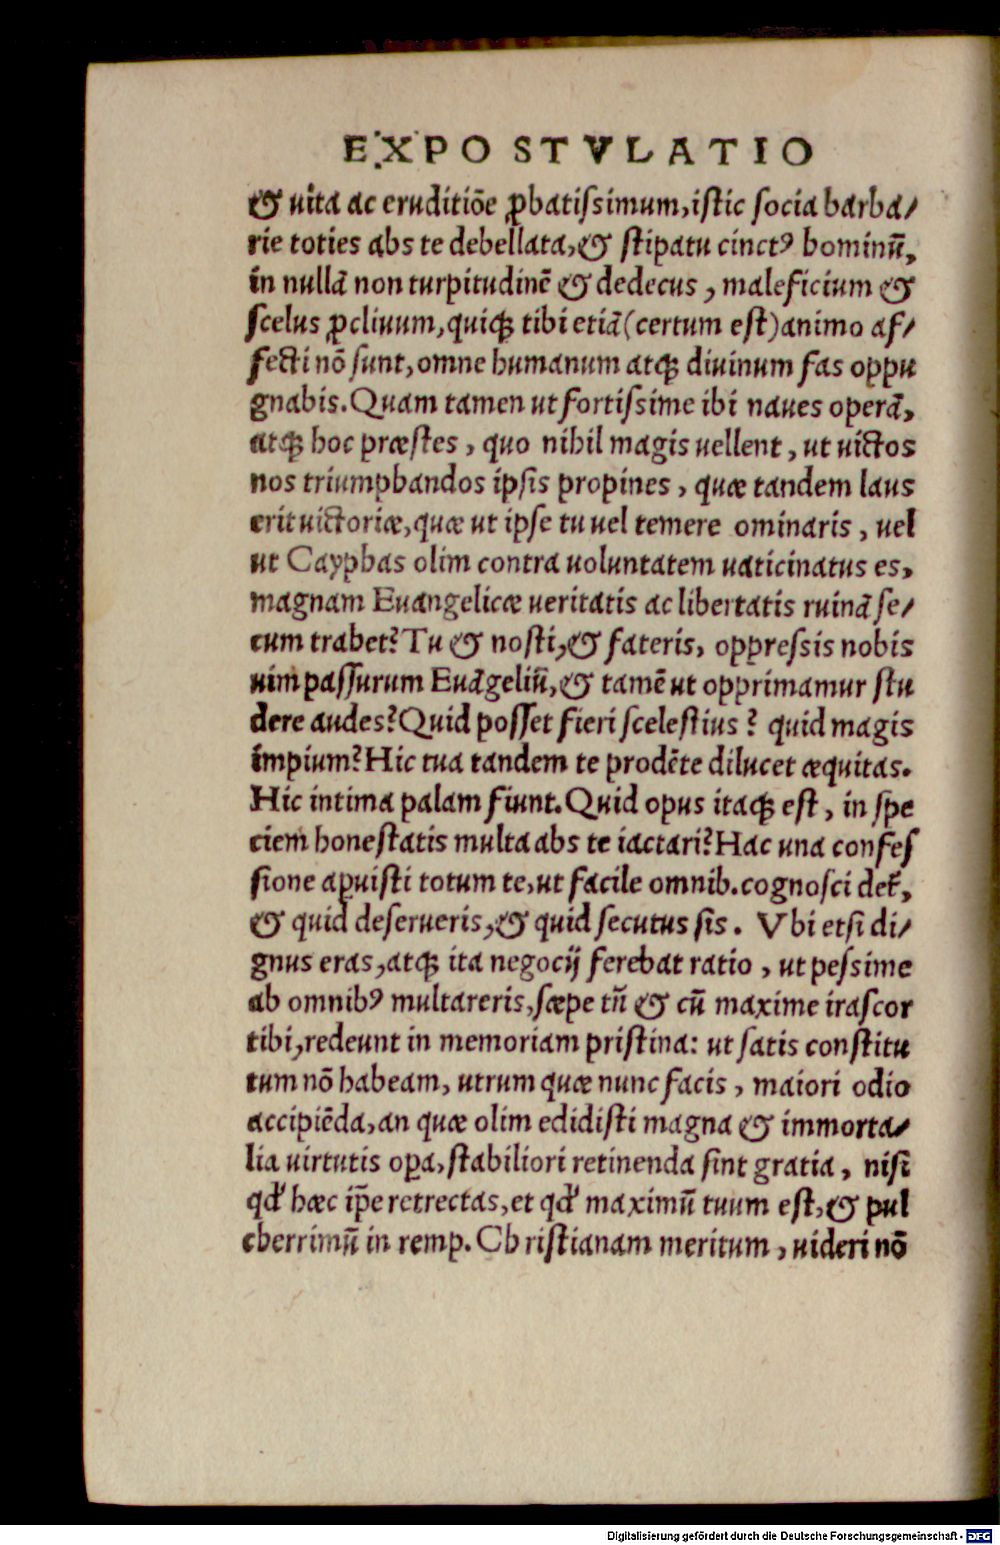 EXPOSTVLATIO
& uita ac eruditiõe ꝓbatiſsimum, iſtic ſocia barba/
rie toties abs te debellata, & ſtipatu cinctꝰ hominũ,
in nullã non turpitudinẽ & dedecus, maleficium &
ſcelus ꝓcliuum, quiqꝫ tibi etiã (certum eſt) animo af/
fecti nõ ſunt, omne humanum atqꝫ diuinum fas oppu
gnabis. Quam tamen ut fortiſsime ibi naues operã,
atqꝫ hoc præſtes, quo nihil magis uellent, ut uictos
nos triumphandos ipſis propines, quæ tandem laus
erit uictoriæ, quæ ut ipſe tu uel temere ominaris, uel
ut Cayphas olim contra uoluntatem uaticinatus es,
magnam Euangelicæ ueritatis ac libertatis ruinã ſe/
cum trahet? Tu & noſti, & fateris, oppreſsis nobis
uim paſſurum Euãgeliũ, & tamẽ ut opprimamur ſtu
dere audes? Quid poſſet fieri ſceleſtius? quid magis
impium? Hic tua tandem te prodẽte dilucet æquitas.
Hic intima palam fiunt. Quid opus itaqꝫ eſt, in ſpe
ciem honeſtatis multa abs te iactari? Hac una confeſ
ſione aꝑuiſti totum te, ut facile omnib. cognoſci det̃,
& quid deſerueris, & quid ſecutus ſis. Vbi etſi di/
gnus eras, atqꝫ ita negocij ferebat ratio, ut peſsime
ab omnibꝰ multareris, ſæpe tñ & cũ maxime iraſcor
tibi, redeunt in memoriam priſtina: ut ſatis conſtitu
tum nõ habeam, utrum quæ nunc facis, maiori odio
accipiẽda, an quæ olim edidiſti magna & immorta/
lia uirtutis oꝑa, ſtabiliori retinenda ſint gratia, niſi
qđ hæc ip̃e retrectas, et qđ maximũ tuum eſt, & pul
cherrimũ in remp. Chriſtianam meritum, uideri nõ
Digitalisierung gefördert durch die Deutsche Forschungsgemeinschaft - DFG